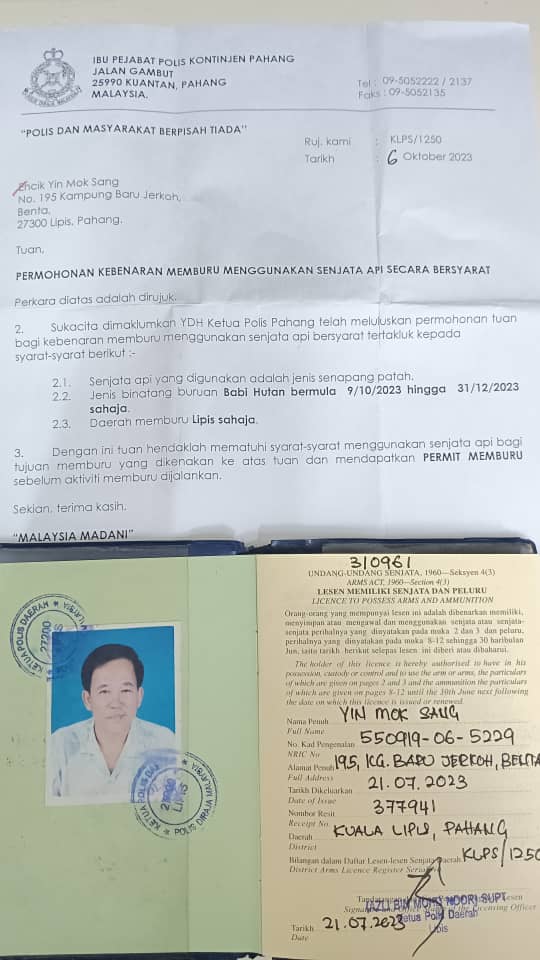 IBU PEJABAT POLIS KONTINJEN PAHANG
JALAN GAMBUT
25990 KUANTAN, PAHANG
MALAYSIA.
Tel : 09-5052222 / 2137
Faks : 09-5052135
"POLIS DAN MASYARAKAT BERPISAH TIADA"
Ruj. kami : KLPS/1250
Tarikh : 6 Oktober 2023
Encik Yin Mok Sang
No. 195 Kampung Baru Jerkoh,
Benta,
27300 Lipis, Pahang.
Tuan,
PERMOHONAN KEBENARAN MEMBURU MENGGUNAKAN SENJATA API SECARA BERSYARAT
Perkara diatas adalah dirujuk.
2. Sukacita dimaklumkan YDH Ketua Polis Pahang telah meluluskan permohonan tuan
bagi kebenaran memburu menggunakan senjata api bersyarat tertakluk kepada
syarat-syarat berikut :-
2.1. Senjata api yang digunakan adalah jenis senapang patah.
2.2. Jenis binatang buruan Babi Hutan bermula 9/10/2023 hingga 31/12/2023
sahaja.
2.3. Daerah memburu Lipis sahaja.
3. Dengan ini tuan hendaklah mematuhi syarat-syarat menggunakan senjata api bagi
tujuan memburu yang dikenakan ke atas tuan dan mendapatkan PERMIT MEMBURU
sebelum aktiviti memburu dijalankan.
Sekian, terima kasih.
"MALAYSIA MADANI"
KETUA POLIS DAERAH
27200
LIPIS
KETUA POLIS DAE
27200
LIPIS
POLIS DIRAJA MALAYSIA
310961
UNDANG-UNDANG SENJATA, 1960—Seksyen 4(3)
ARMS ACT, 1960—Section 4(3)
LESEN MEMILIKI SENJATA DAN PELURU
LICENCE TO POSSESS ARMS AND AMMUNITION
Orang-orang yang mempunyai lesen ini adalah dibenarkan memiliki,
menyimpan atau mengawal dan menggunakan senjata atau senjata-
senjata perihalnya yang dinyatakan pada muka 2 dan 3 dan peluru,
perihalnya yang dinyatakan pada muka 8-12 sehingga 30 haribulan
Jun, iaitu tarikh berikut selepas lesen ini diberi atau dibaharui.
The holder of this licence is hereby authorised to have in his
possession, custody or control and to use the arm or arms, the particulars
of which are given on pages 2 and 3 and the ammunition the particulars
of which are given on pages 8-12 until the 30th June next following
the date on which this licence is issued or renewed.
Nama Penuh YIN MOK SANG
Full Name
No. Kad Pengenalan 550919-06-5229
NRIC No
Alamat Penuh 195, KG. BARU JERKOH, BENTA
Full Address
Tarikh Dikeluarkan 21.07.2023
Date of Issue
Nombor Resit 377941
Receipt No.
Daerah KUALA LIPIS, PAHANG
District
Bilangan dalam Daftar Lesen-lesen Senjata Daerah KLPS/1250
District Arms Licence Register Serial
Lesen
Licensing Officer
(AZLI BIN MOHD NOOR) SUPT
Ketua Polis Daerah
Lipis
Tarikh 21.07.2023
Date